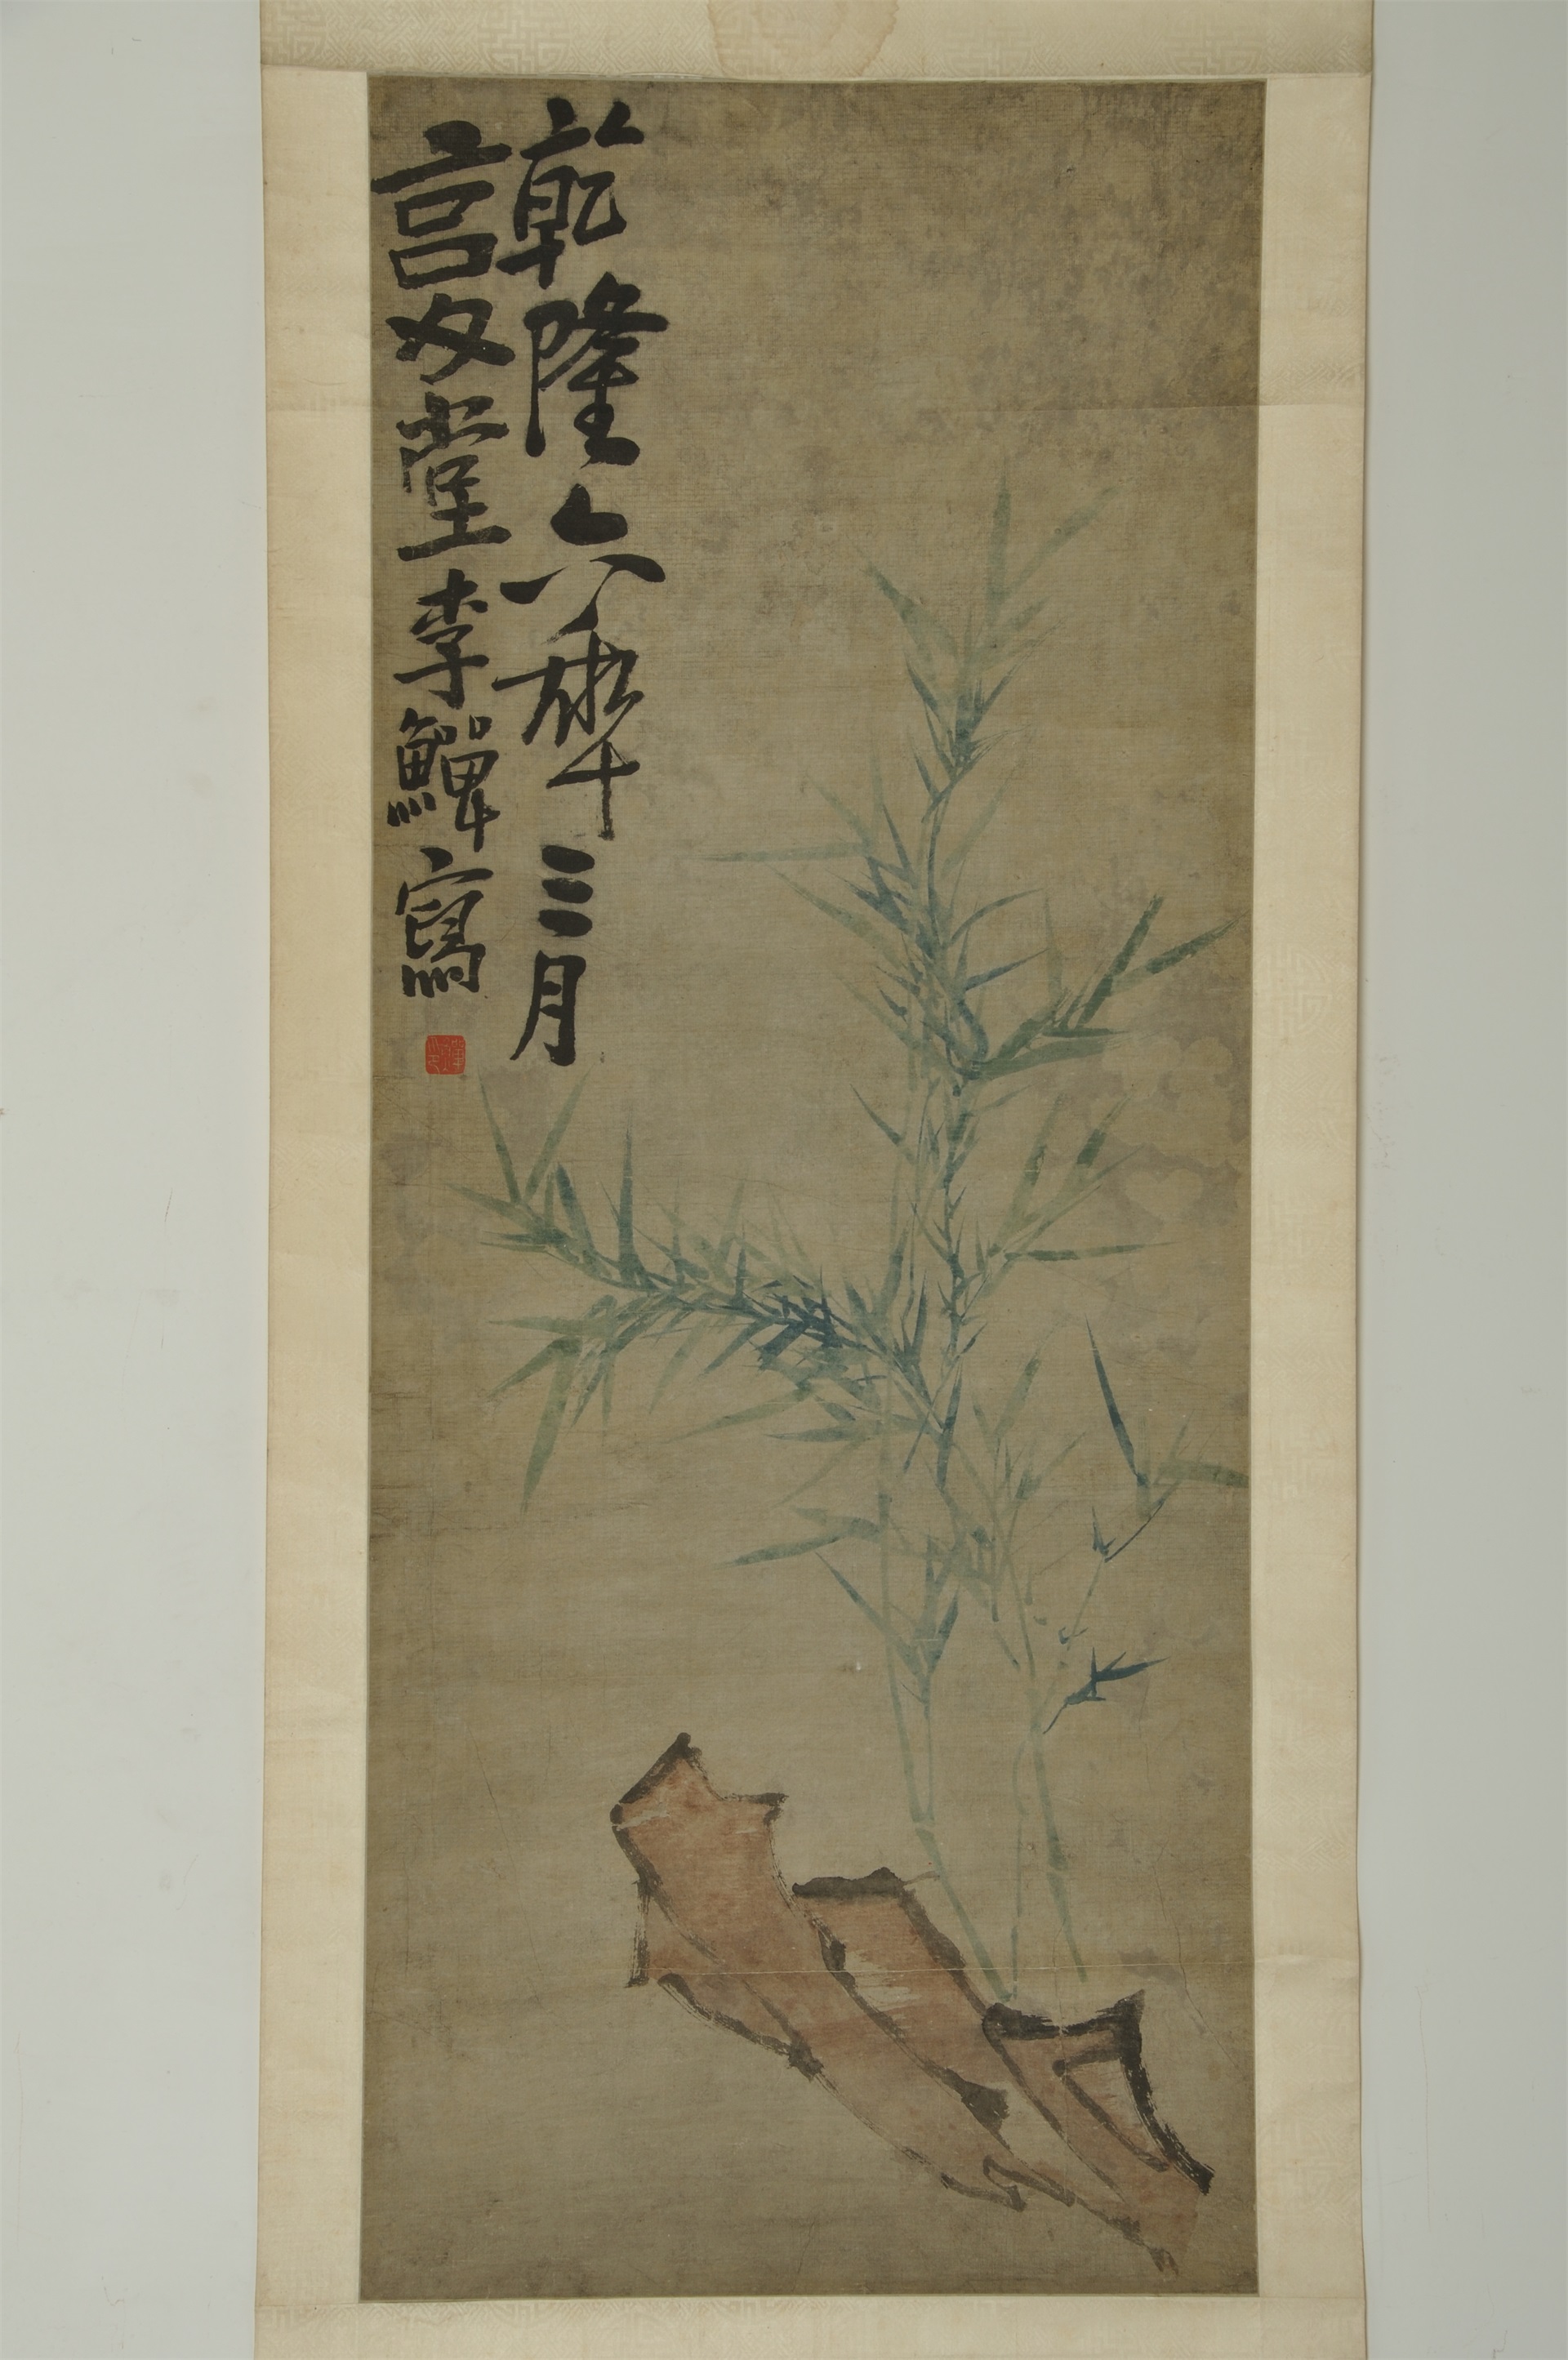 乾隆六年三月
复堂李鱓寫